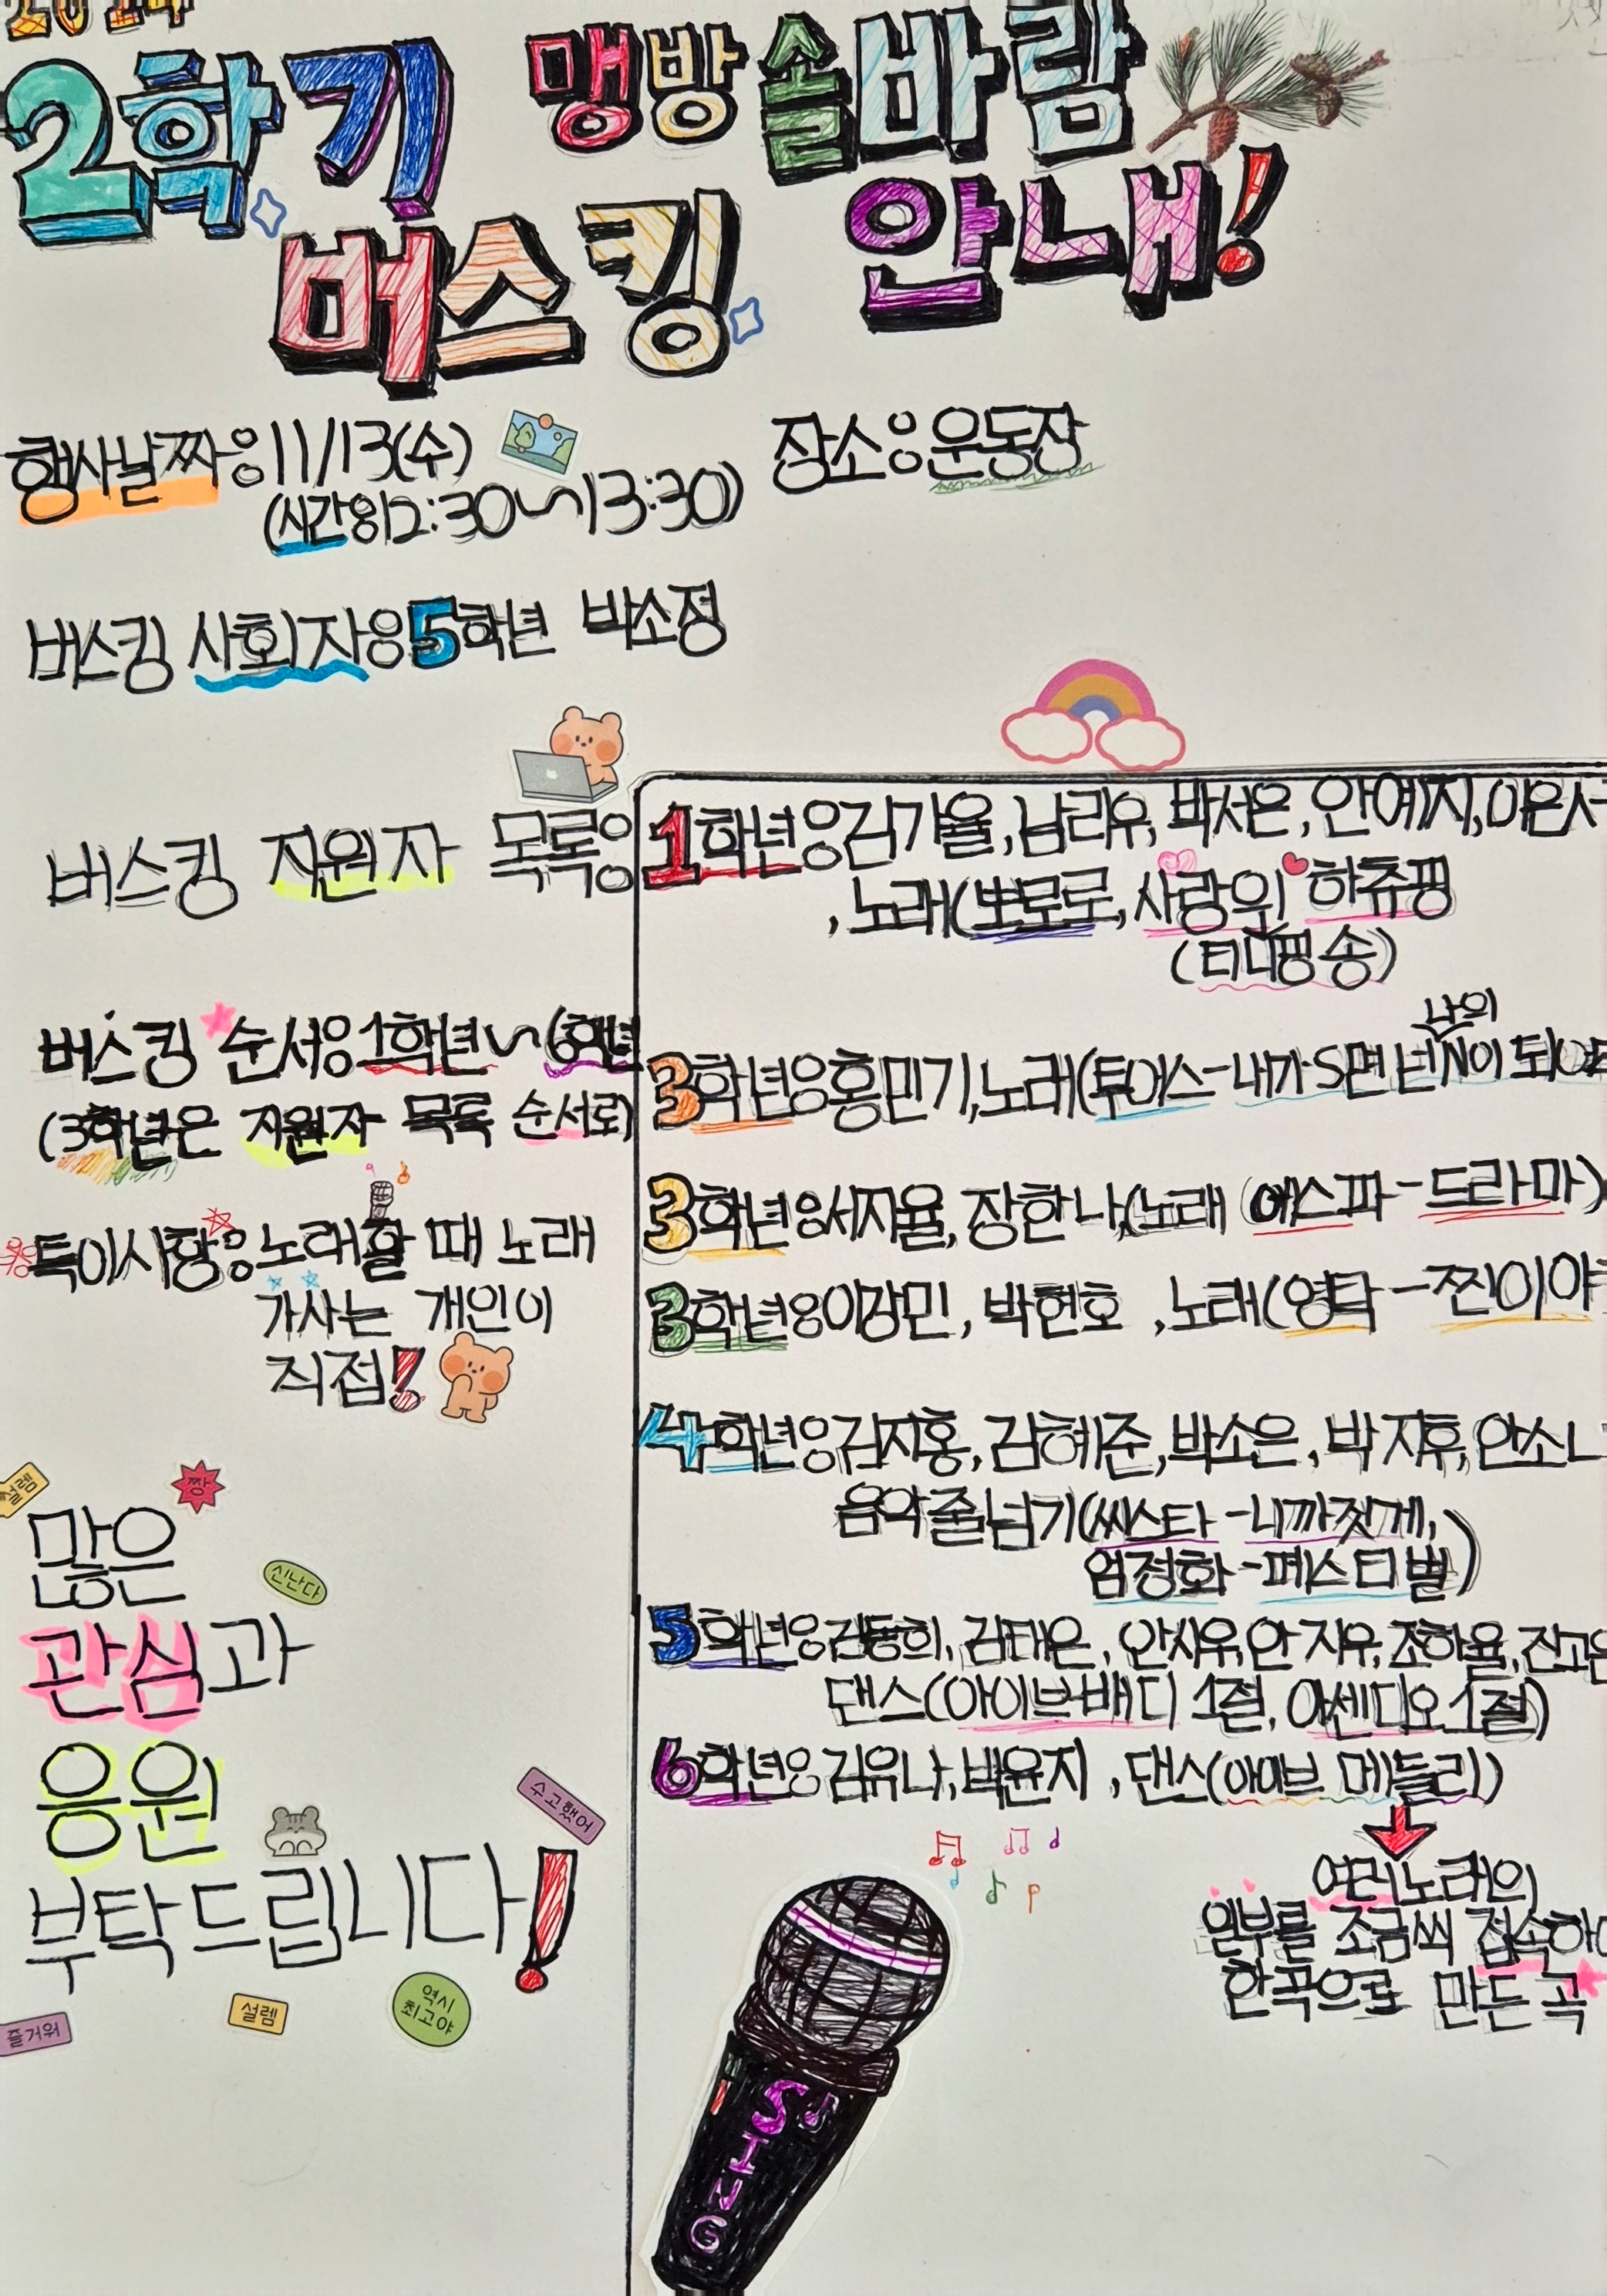 2024
2학기 맹방 솔바람
버스킹 안내!
행사날짜:11/13(수)
(시간:12:30~13:30)
장소:운동장
버스킹 사회자:5학년 박소정
버스킹 지원자 목록:
버스킹 순서:1학년~6학년
(3학년은 지원자 목록 순서로)
※특이사항:노래할 때 노래
가사는 개인이
직접!
설렘
짱
많은
신난다
관심과
응원
수고했어
부탁드립니다!
즐거워
설렘
역시
최고야
1학년:김기율,남리유,박서은,안예지,이은서
,노래(뽀로로,사랑의 하츄핑
(티니핑 송)
3학년:홍민기,노래(투어스-내가 S면 넌 나의 N이 되어
3학년:서지율,장한나,(노래 에스파-드라마)
3학년:이강민, 박현호 ,노래(영탁-찐이야
4학년:김지홍,김혜준,박소은,박지후,안소
음악줄넘기(씨스타-니까짓게,
엄정화-페스티벌)
5학년:김동희,김태은,안시우,안지우,조하율,진고은
댄스(아이브-배디 1절, 아센디오 1절)
6학년:김유나,박윤지 ,댄스(아이브 메들리)
여러노래의
일부를 조금씩 접속하
한곡으로 만든 곡
SING